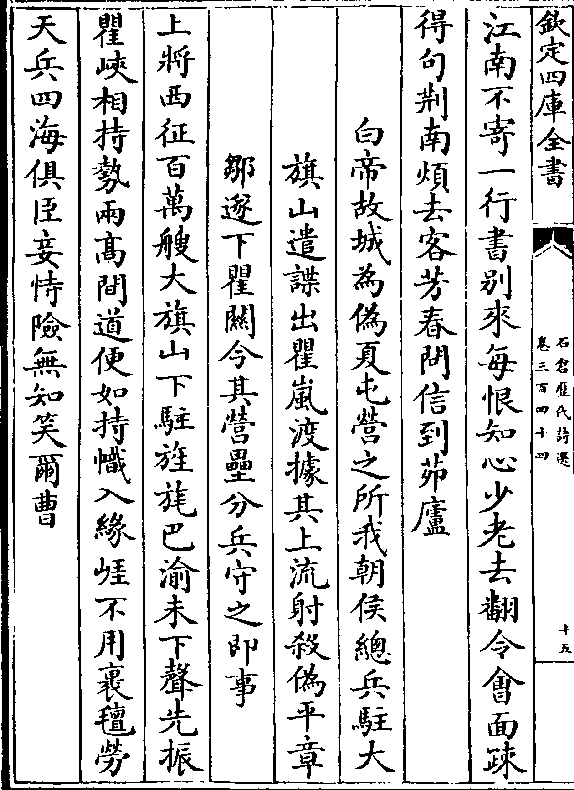 欽定四庫全書
石倉歷代詩選
卷三百四十四
十五
江南不寄一行書别來每恨知心少老去翻令會面疎
得句荆南煩去客芳春問信到茆廬
白帝故城為偽夏屯營之所我朝侯總兵駐大
旗山遣諜出瞿嵐渡據其上流射殺偽平章
鄒遂下瞿關今其營壘分兵守之即事
上將西征百萬艘大旗山下駐旌旄巴渝未下聲先振
瞿峽相持勢兩髙間道便如持幟入緣崖不用裹氊勞
天兵四海俱臣妾恃險無知笑爾曹